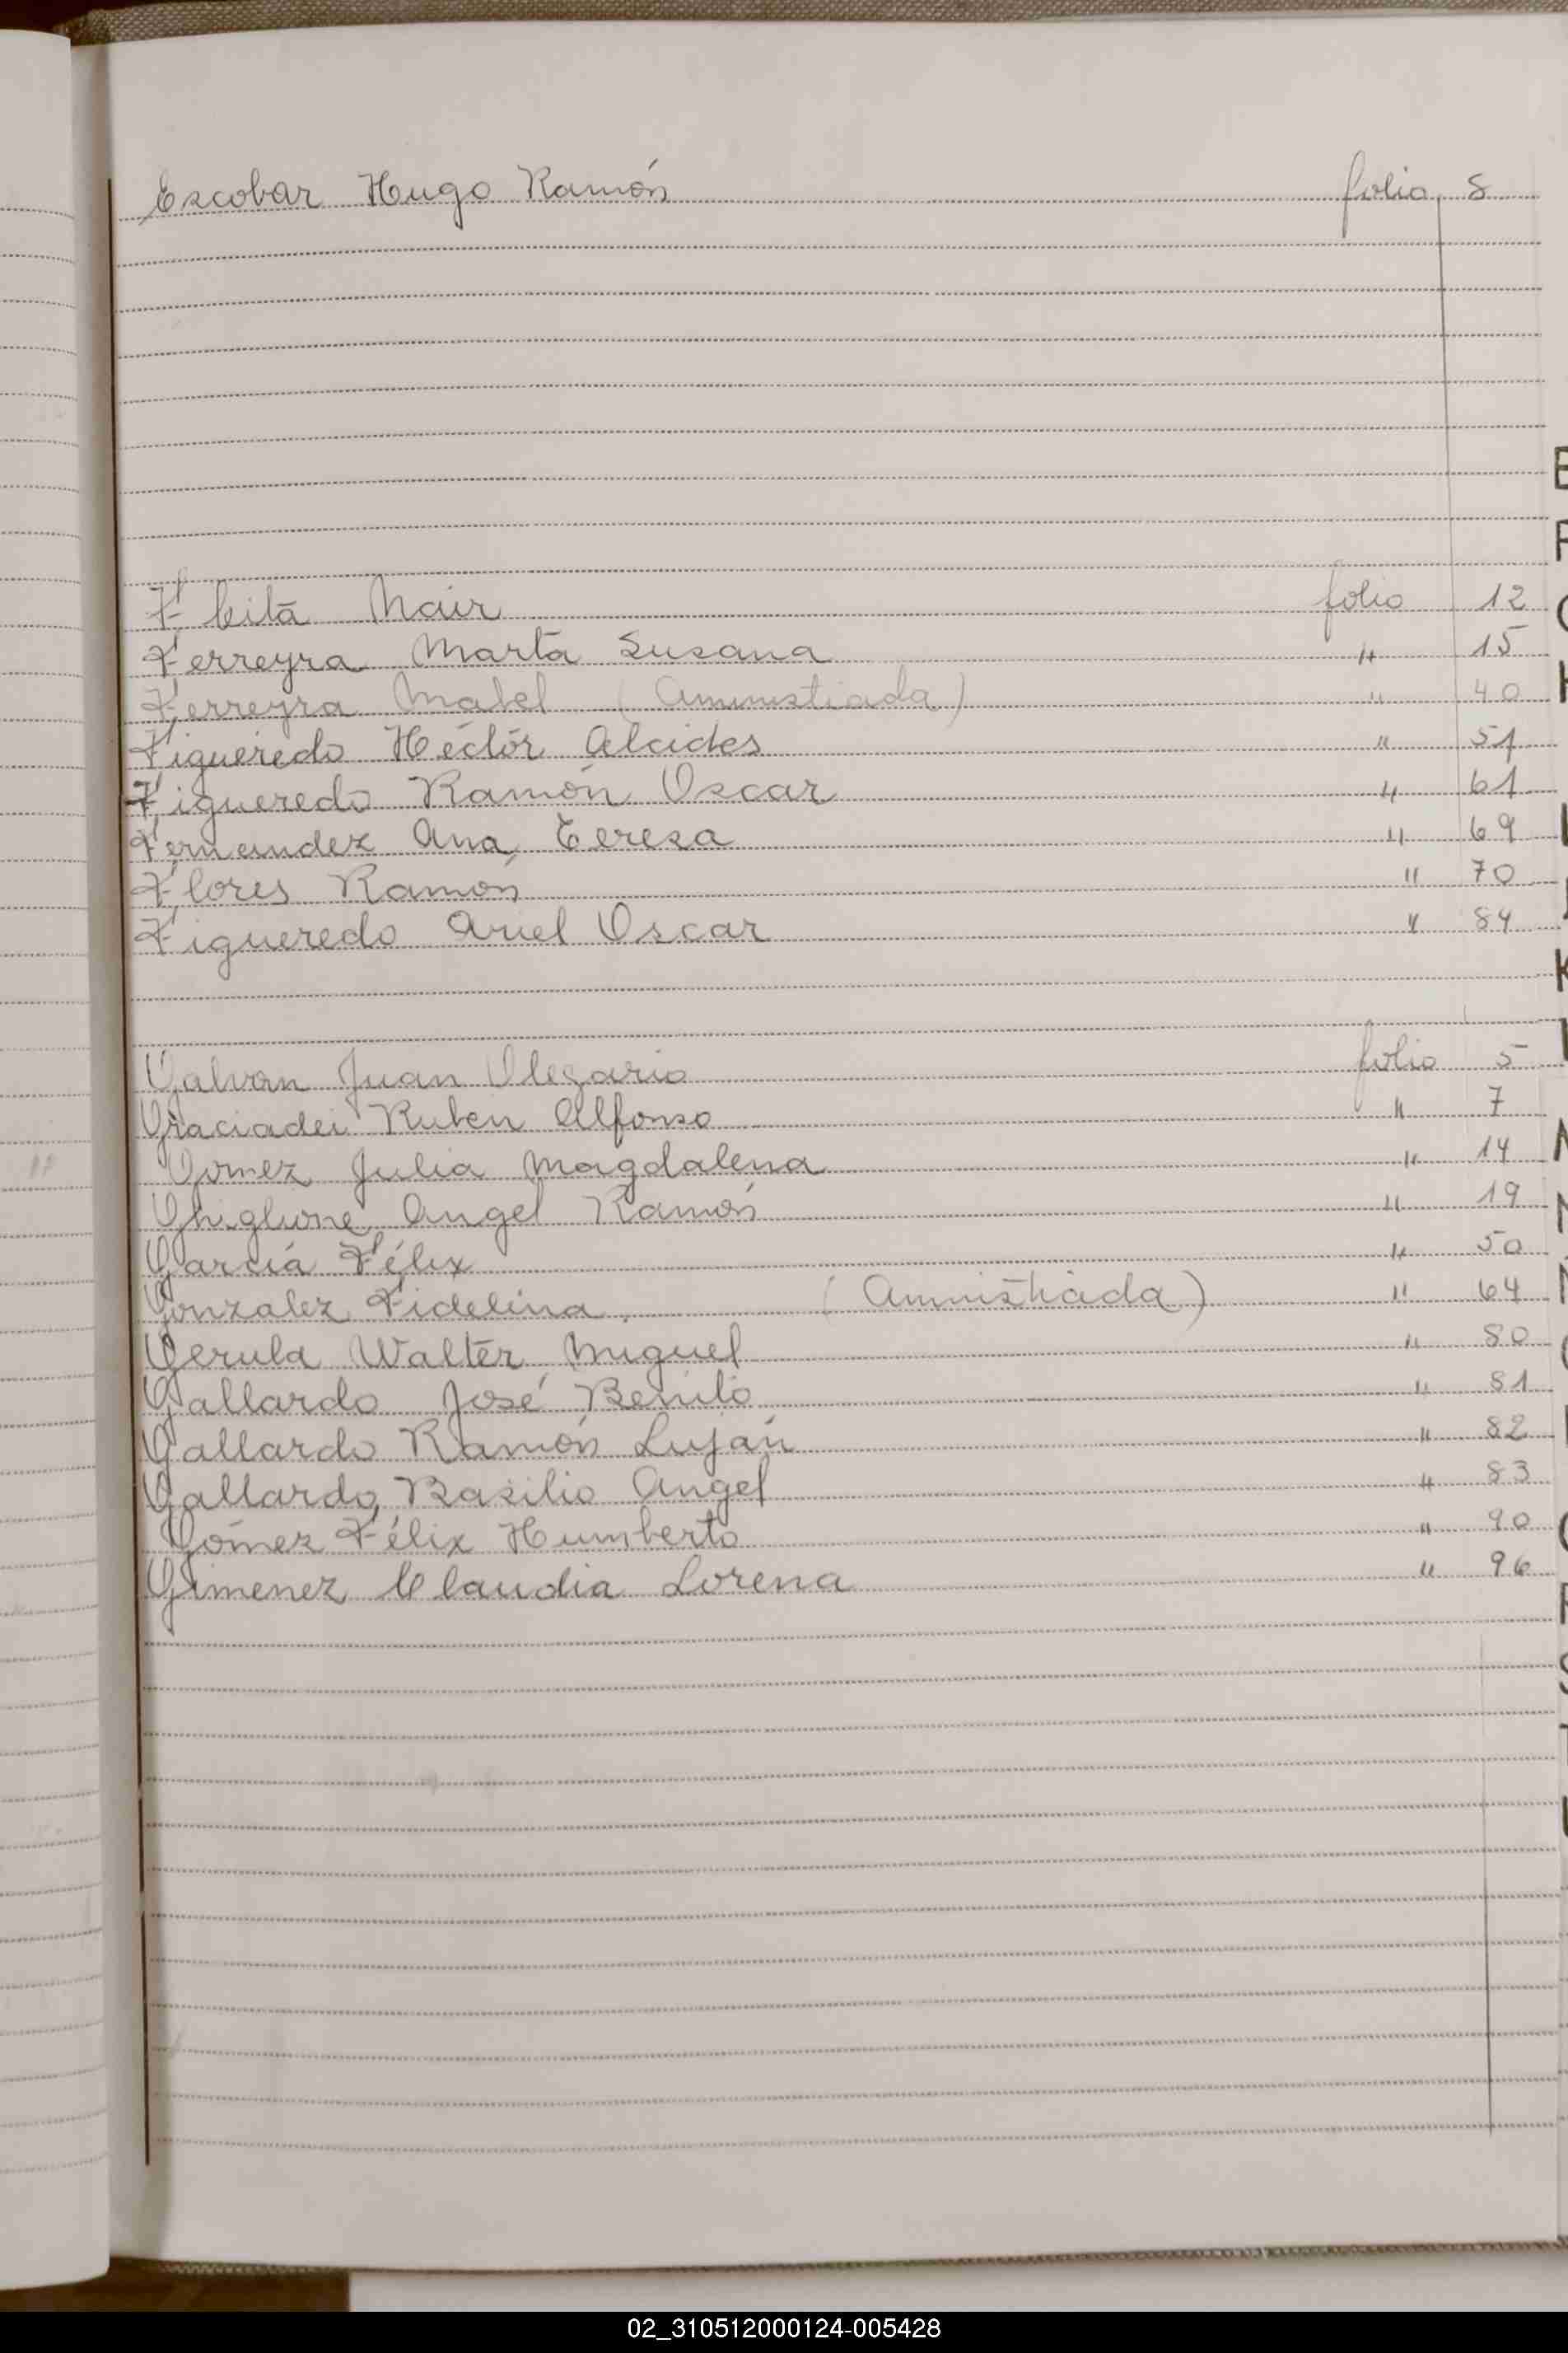 Escobar Hugo Ramón folio 8
Fleitā Mair folio 12
Ferreyra Marta Susana " 15
Ferreyra Mabel (Amnistiada) " 40
Figueredo Héctor Alcides " 51
Figueredo Ramón Oscar " 61
Fernandez Ana Teresa " 69
Flores Ramón " 70
Figueredo Ariel Oscar " 84
Galvan Juan Olegario folio 5
Graciadei Ruben Alfonso " 7
Gomez Julia Magdalena " 14
Ghiglione Angel Ramón " 19
García Félix " 50
Gonzalez Fidelina (Amnistiada) " 64
Gerula Walter Miguel " 80
Gallardo José Benito " 81
Gallardo Ramón Luján " 82
Gallardo Basilio Angel " 83
Gómez Félix Humberto " 90
Gimenez Claudia Lorena " 96
02_310512000124-005428